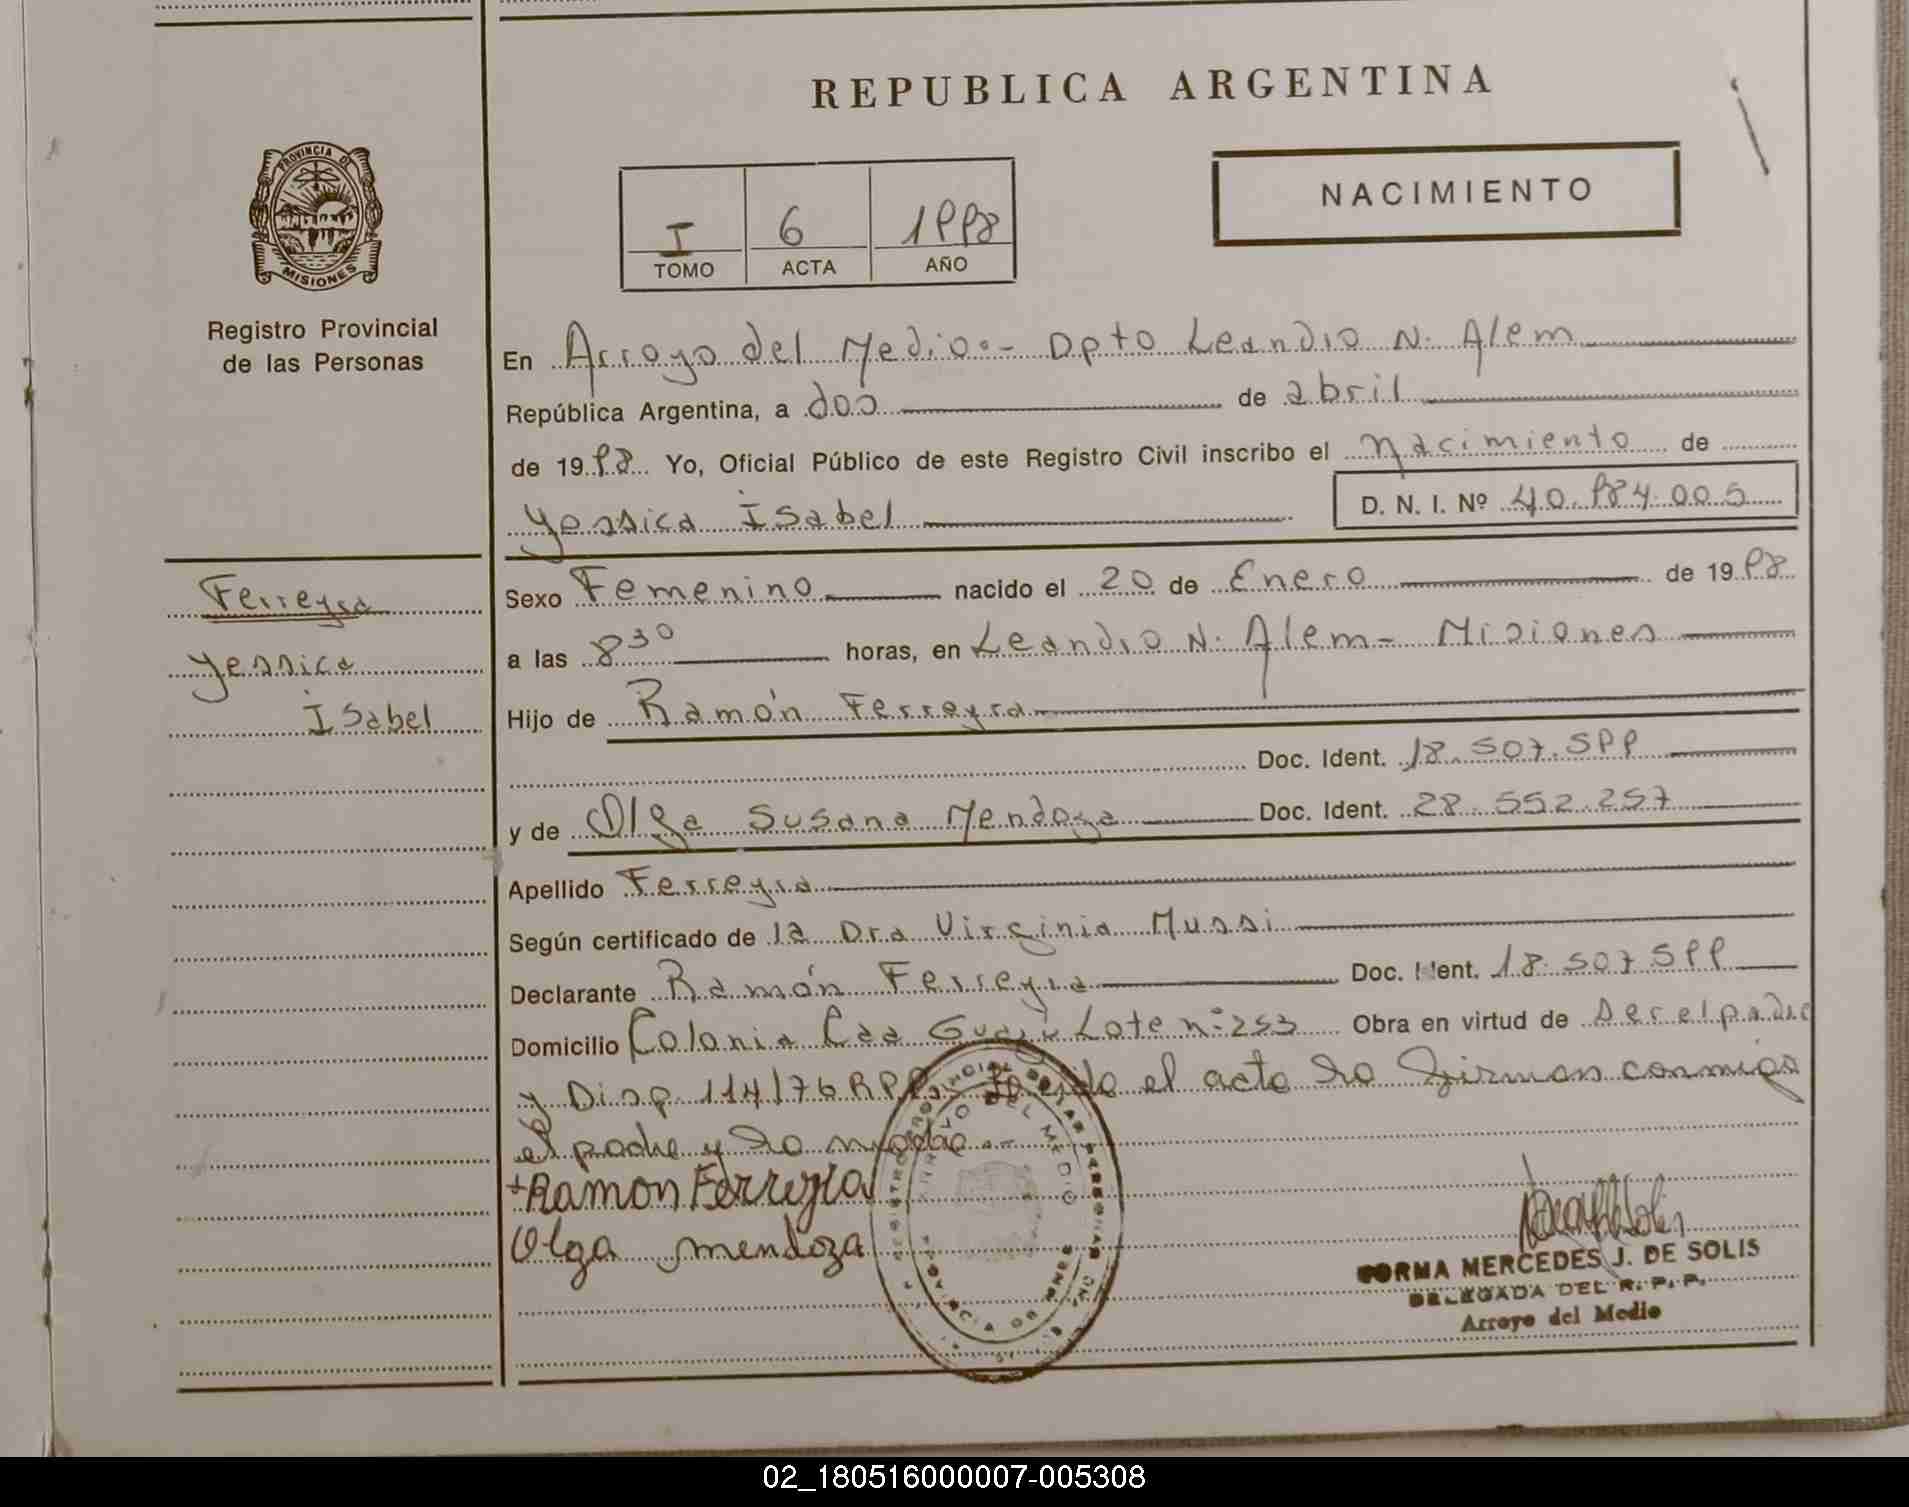 REPUBLICA ARGENTINA
PROVINCIA DE
MISIONES
Registro Provincial
de las Personas
NACIMIENTO
I 6 1998
TOMO ACTA AÑO
En Arroyo del Medio.- Dpto Leandro N. Alem
República Argentina, a dos de abril
de 1998 Yo, Oficial Público de este Registro Civil inscribo el nacimiento de
Yessica Isabel D. N. I. Nº 40.984.005
Ferreyra
Yessica
Isabel
Sexo Femenino nacido el 20 de Enero de 1998
a las 8 30 horas, en Leandro N. Alem - Misiones
Hijo de Ramón Ferreyra
Doc. Ident. 18.507.599
y de Olga Susana Mendoza Doc. Ident. 28.552.257
Apellido Ferreyra
Según certificado de la Dra Virginia Mussi
Declarante Ramón Ferreyra Doc. Ident. 18.507.599
Domicilio Colonia Caa Guazú Lote nº 253 Obra en virtud de ser el padre
y Disp. 114/76 RPP. el acta la firman conmigo
el padre y la madre.-
+Ramon Ferreyra
Olga mendoza
ARROYO DEL MEDIO
PROVINCIA DE MISIONES
NORMA MERCEDES J. DE SOLIS
DELEGADA DEL R. P. P.
Arroyo del Medio
02_180516000007-005308